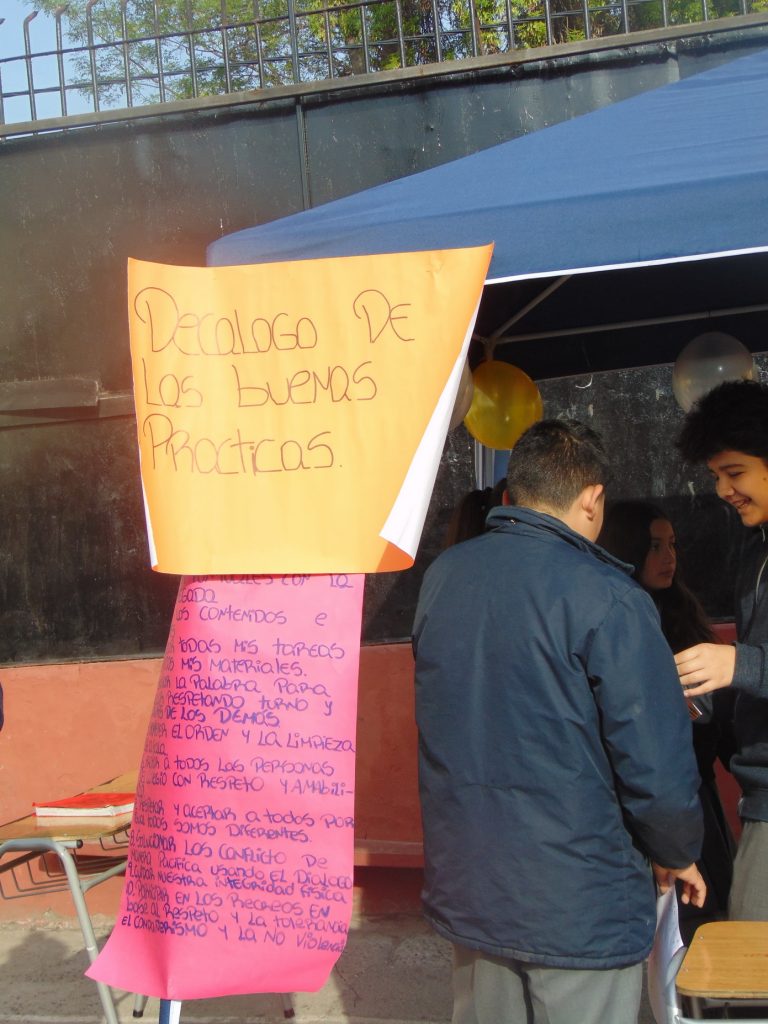 DecaLogo DE
Las buenas
Practicas.
CON LA
LOS CONTENIDOS e
TODAS MIS TAREAS
MIS MATERIALES.
LA PALABRA PARA
RESPETANDO TURNO y
DE LOS DEMÁS
EL ORDEN Y LA LIMPIEZA
A TODOS LAS PERSONAS
CON RESPETO Y AMABILI-
Y ACEPTAR A TODOS POR
TODOS SOMOS DIFERENTES.
LOS CONFLICTO DE
PACIFICA USANDO EL DIALOGO
NUESTRA INTEGRIDAD FISICA
10. PARTICIPAR EN LOS RECREOS EN
base al RESPETO Y LA TOLERANCIA
Y LA NO VIOLENCIA